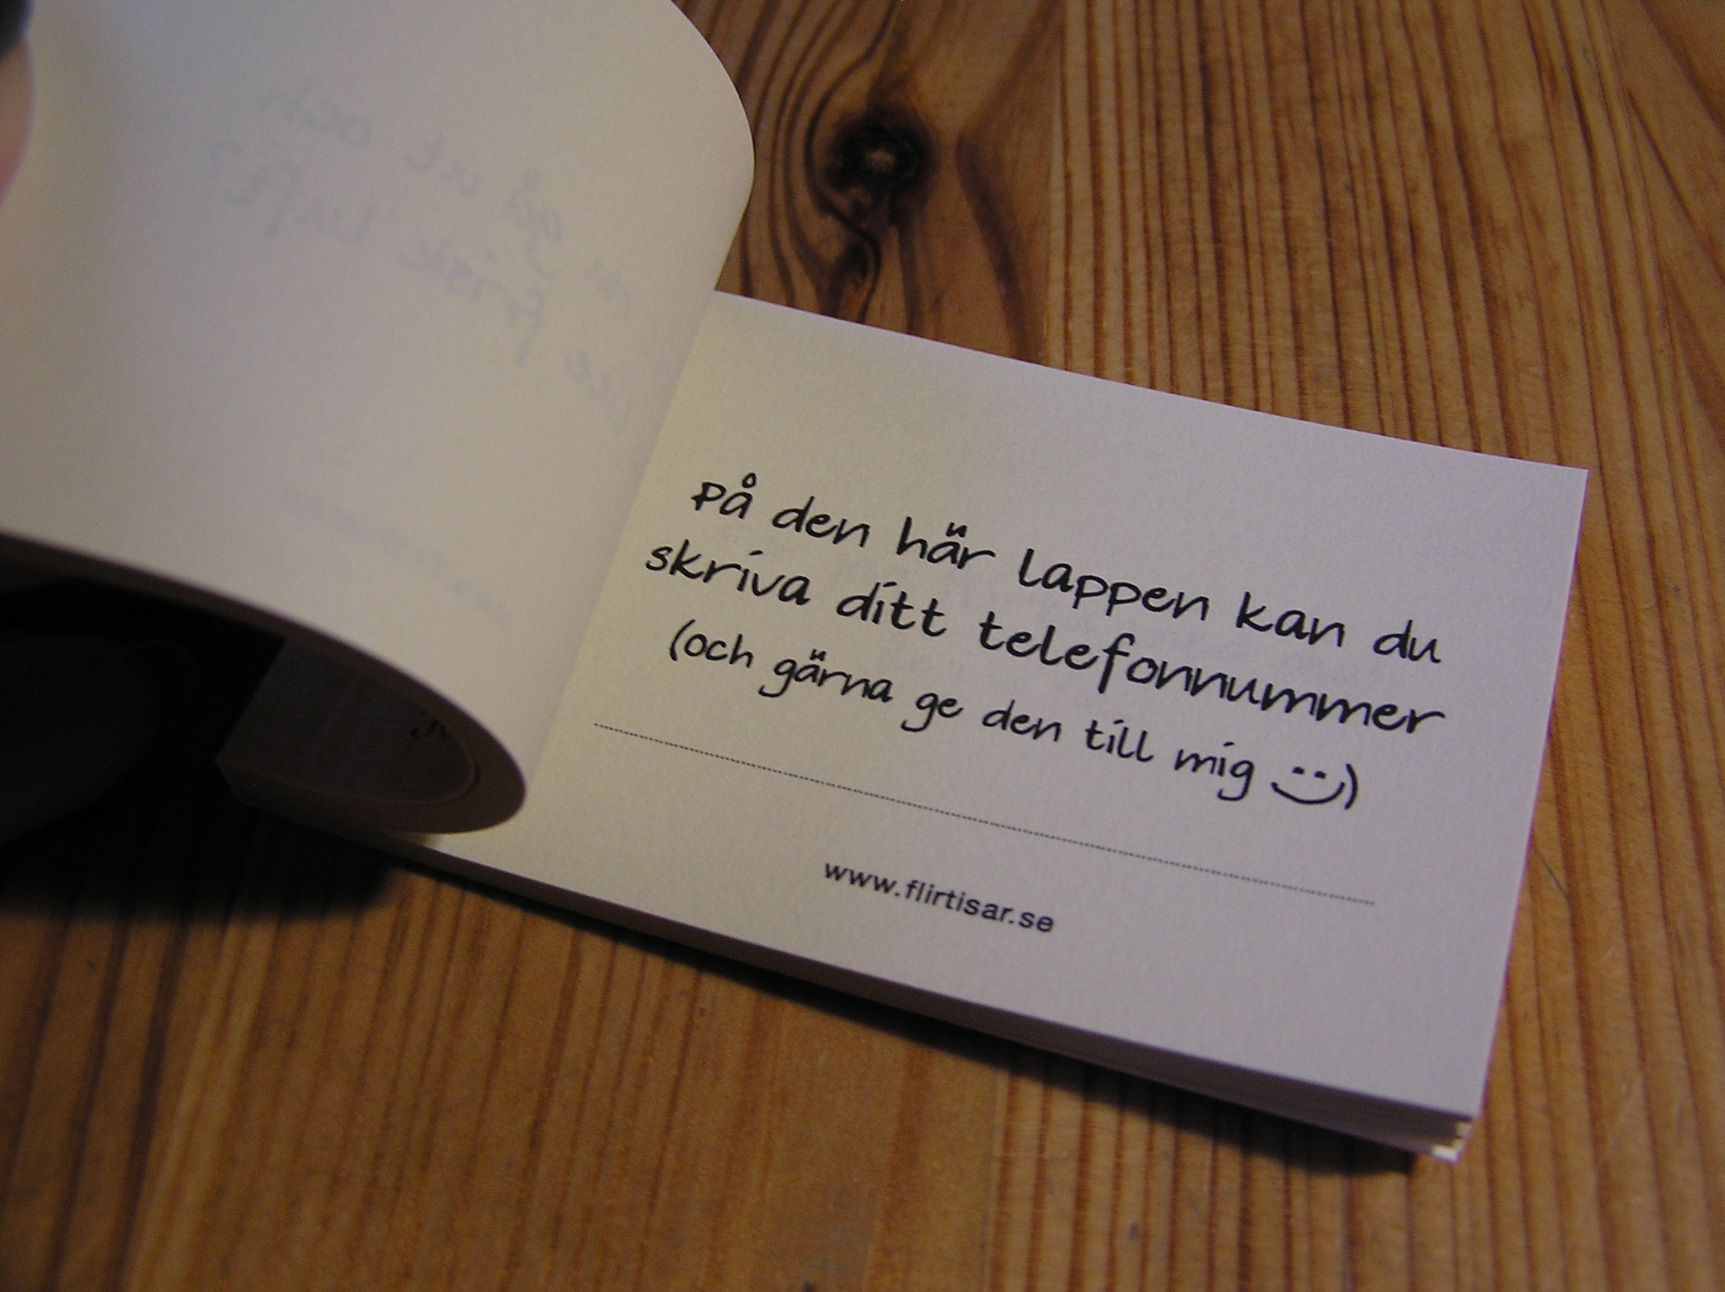 på den här lappen kan du
skriva ditt telefonnummer
(och gärna ge den till mig :-))
www.flirtisar.se
gå ut och
frisk luft?